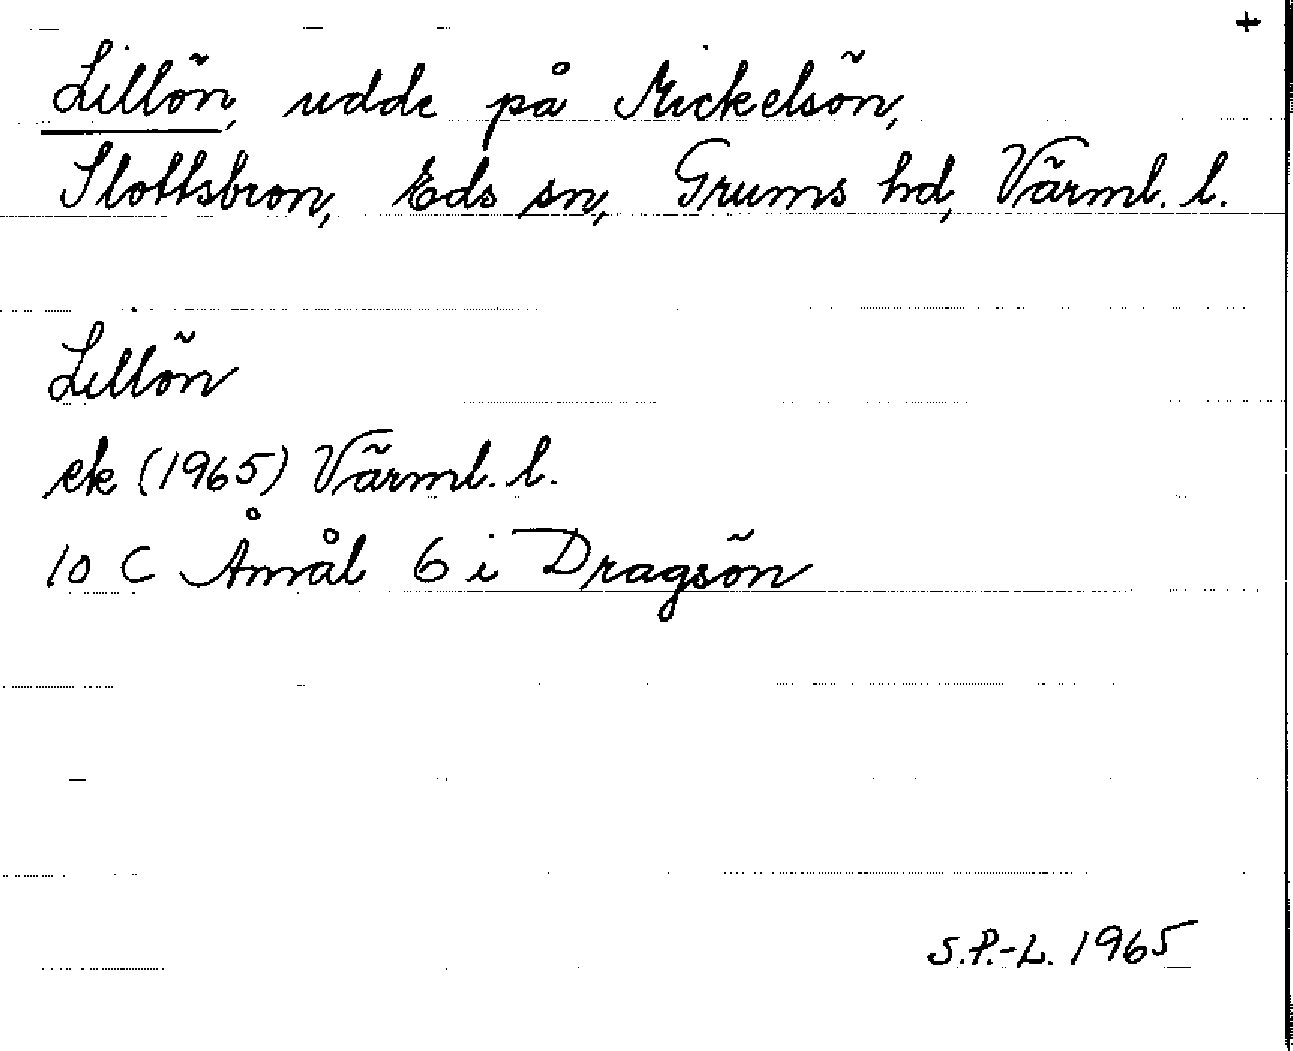 +
Lillön, udde på Mickelsön,
Slottsbron, Eds sn, Grums hd, Värml. l.
Lillön
ek (1965) Värml. l.
10 C Åmål 6 i Dragsön
S.P.-L. 1965